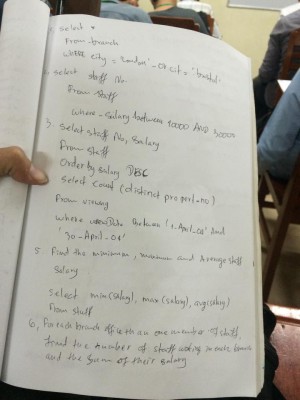 1, select *
From branch
where city = 'London' - OR cit = 'bristol'.
2. select staff No
From staff
where - salary between 10000 AND 30000
3. select staff No, salary
From staff
Order by salary DEC
select count (distinct properl-no)
From viewing
where viewDate between '1-April-08' and
'30-April-08'
5. Find the minimum, maximum and Average staff
salary
select min(salary), max(salary), avg(salary)
From staff
6, for each branch office with an one member of staff,
find the number of staff working in each branch
and the sum of their salary